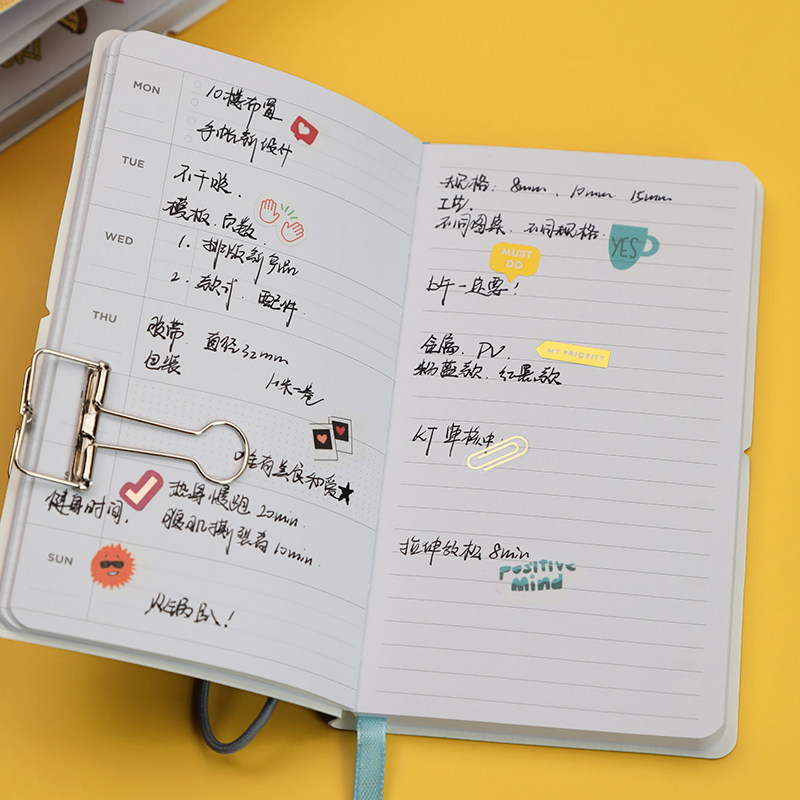 MON
10楼布置
手帐新设计
TUE
不干胶.
模板. 页数.
WED
1. 排版新产品
2. 款式. 配件
THU
胶带. 直径32mm
包装 10米一卷
唯有美食和爱★
热身慢跑 20min.
健身时间.
腹肌撕裂者 10min.
SUN
火锅趴!
规格: 8mm. 10mm 15mm
工艺.
不同图案. 不同规格.
YES
MUST
DO
上午一定要!
金属. PV.
MY PRIORITY
粉蓝款. 红黑款
KT 审核中.
拉伸放松 8min
positive
mind